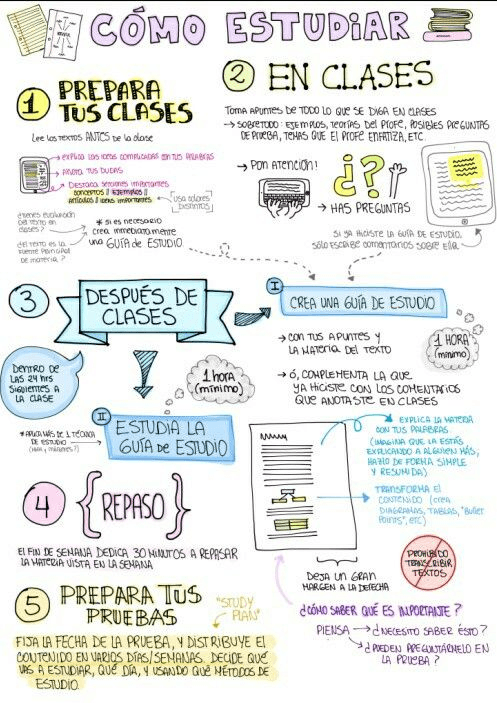 CÓMO ESTUDIAR
1
PREPARA
TUS CLASES
LEE LOS TEXTOS ANTES DE LA CLASE
→ EXPLICA LAS IDEAS COMPLICADAS CON TUS PALABRAS
ANOTA TUS DUDAS
DESTACA SECCIONES IMPORTANTES
CONCEPTOS // EJEMPLOS //
ARTÍCULOS // IDEAS IMPORTANTES
USA COLORES
DISTINTOS
¿TIENES EVALUACIÓN
DEL TEXTO EN
CLASES?
¿EL TEXTO ES LA
FUENTE PRINCIPAL
DE MATERIA?
* SI ES NECESARIO
CREA INMEDIATAMENTE
UNA GUÍA DE ESTUDIO
2
EN CLASES
TOMA APUNTES DE TODO LO QUE SE DIGA EN CLASES
→ SOBRETODO: EJEMPLOS, TEORÍAS DEL PROFE, POSIBLES PREGUNTAS
DE PRUEBA, TEMAS QUE EL PROFE ENFATIZA, ETC.
→ PON ATENCIÓN!
¿?
→ HAS PREGUNTAS
SI YA HICISTE LA GUÍA DE ESTUDIO,
SÓLO ESCRIBE COMENTARIOS SOBRE ELLA
3
DESPUÉS DE
CLASES
DENTRO DE
LAS 24 HRS
SIGUIENTES A
LA CLASE
I
CREA UNA GUÍA DE ESTUDIO
→ CON TUS APUNTES Y
LA MATERIA DEL TEXTO
→ Ó, COMPLEMENTA LA QUE
YA HICISTE CON LOS COMENTARIOS
QUE ANOTASTE EN CLASES
1 HORA
(MÍNIMO)
1 HORA
(MÍNIMO)
II
ESTUDIA LA
GUÍA DE ESTUDIO
* APLICA MÁS DE 1 TÉCNICA
DE ESTUDIO
EXPLICA LA MATERIA
CON TUS PALABRAS
(IMAGINA QUE LA ESTÁS
EXPLICANDO A ALGUIEN MÁS,
HAZLO DE FORMA SIMPLE
Y RESUMIDA)
TRANSFORMA EL
CONTENIDO (CREA
DIAGRAMAS, TABLAS, "BULLET
POINTS", ETC)
PROHIBIDO
TRANSCRIBIR
TEXTOS
DEJA UN GRAN
MARGEN A LA DERECHA
¿CÓMO SABER QUÉ ES IMPORTANTE?
PIENSA → ¿NECESITO SABER ÉSTO?
→ ¿PUEDEN PREGUNTÁRMELO EN
LA PRUEBA?
4
{REPASO}
EL FIN DE SEMANA DEDICA 30 MINUTOS A REPASAR
LA MATERIA VISTA EN LA SEMANA
5
PREPARA TUS
PRUEBAS
"STUDY
PLAN"
FIJA LA FECHA DE LA PRUEBA, Y DISTRIBUYE EL
CONTENIDO EN VARIOS DÍAS/SEMANAS. DECIDE QUÉ
VAS A ESTUDIAR, QUÉ DÍA, Y USANDO QUÉ MÉTODOS DE
ESTUDIO.